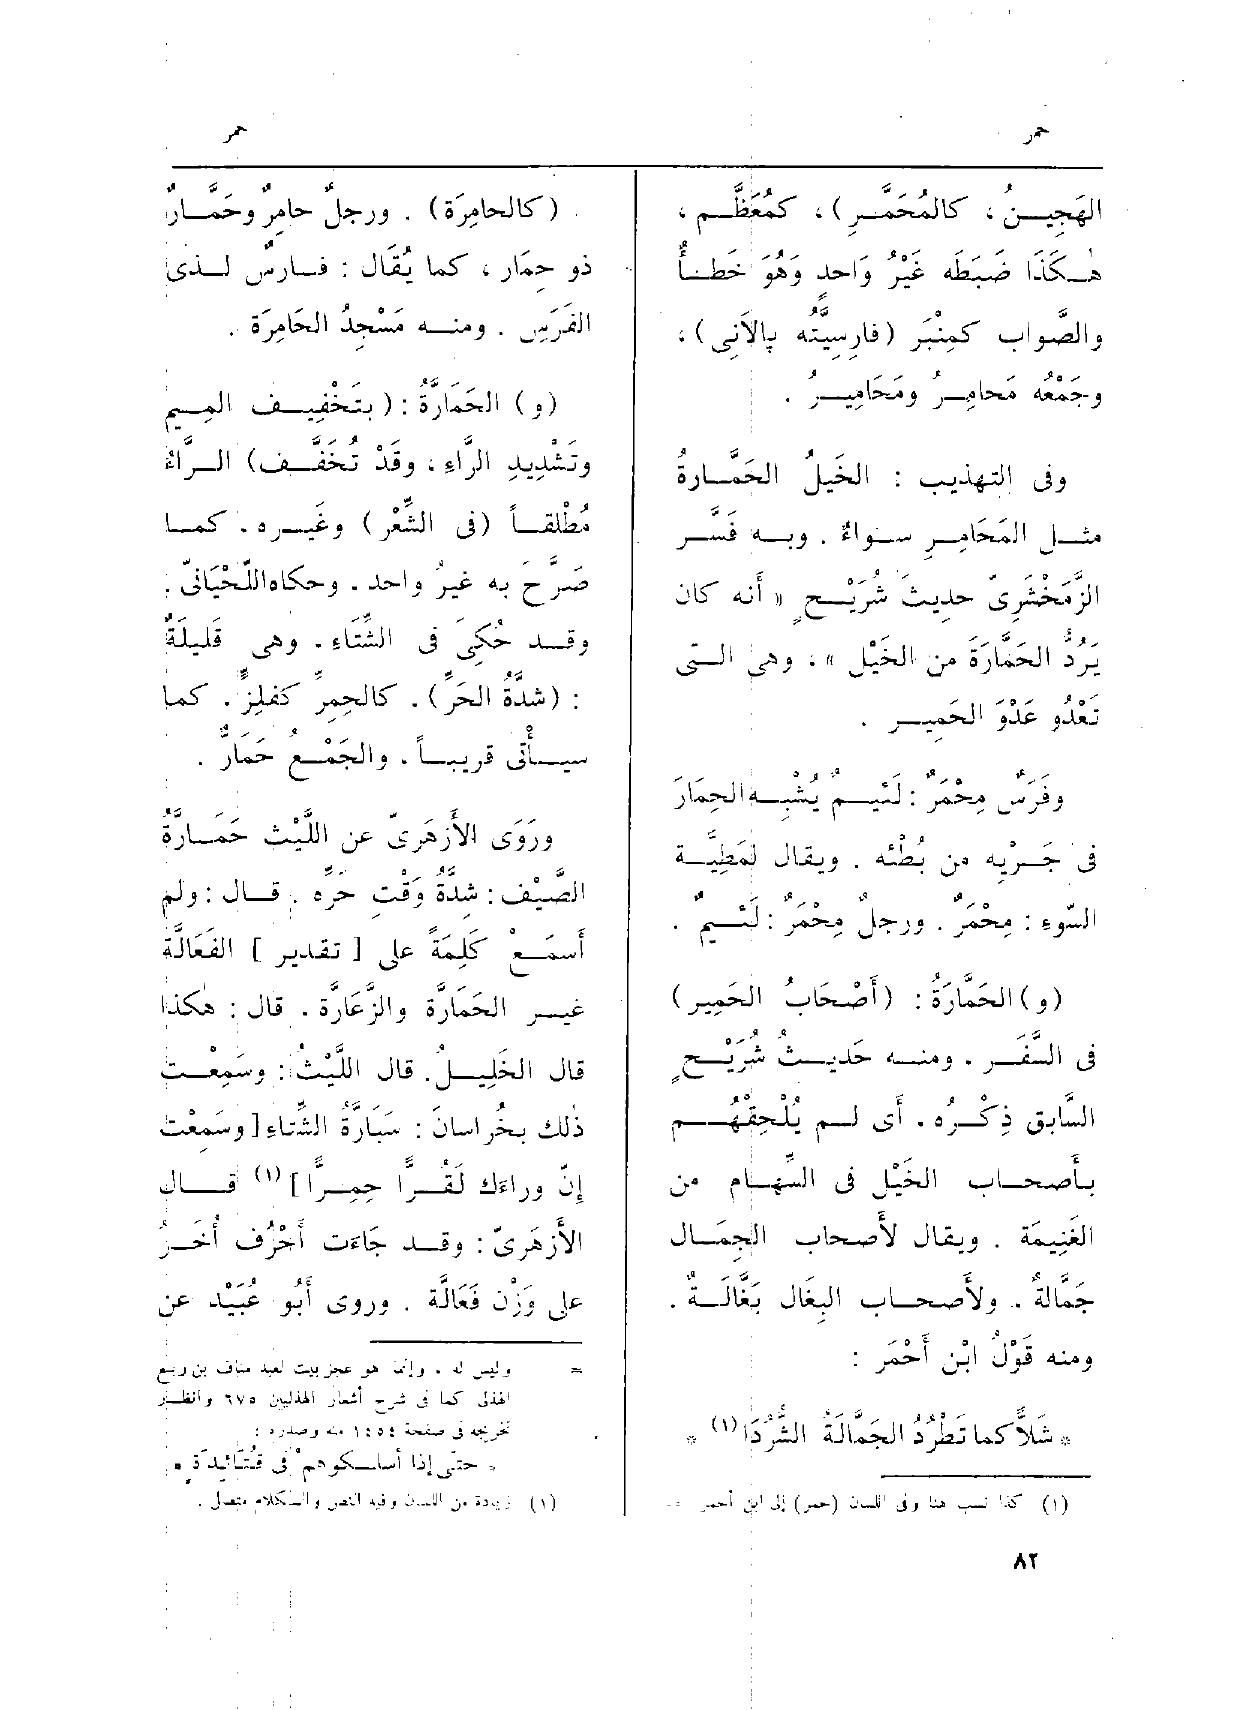 حمر
حمر
الهَجِيـنُ ، كالمُحَمَّـرِ) ، كمُعَظَّـم ،
هٰـكَذَا ضَبَطَه غَيْرُ وَاحد وَهُوَ خَطـأٌ
والصَّواب كمِنْبَر (فارِسِيَّتُه پالَانِى) ،
وجَمْعُه مَحامِـرُ ومَحَامِيـرُ .
وفى التهذيب : الخَيلُ الحَمَّـارةُ
مثـل المَحَامِرِ سـواءٌ . وبـه فَسَّـر
الزَّمَخْشَرِىّ حديثَ شُرَيْـحٍ « أنه كان
يَرُدُّ الحَمَّارَةَ من الخَيْلِ » ، وهى الـتى
تَعْدُو عَدْوَ الحَمِيـر .
وفَرَسٌ مِحْمَرٌ : لَئيـمٌ يُشْبِـه الحِمَارَ
فى جَـرْيِه من بُطْئه . ويقال لمَطِيَّـة
السَّوء : مِحْمَرٌ . ورجل مِحْمَرٌ : لَئيـمٌ .
(و) الحَمَّارَةُ : (أَصْحَابُ الحَمِير)
فى السَّفَر . ومنـه حَديـثُ شُرَيْـحٍ
السَّابق ذِكْـرُه . أَى لـم يُلْحِقْهُـم
بـأَصحـاب الخَيْل فى السِّهـام من
الغَنِيمَة . ويقال لأَصحاب الجِمَـال
جَمَّالَةٌ . ولأَصحـاب البِغَال بَغَّالَـةٌ .
ومنه قَوْلُ ابْنِ أَحْمَر :
* شَلاًّ كما تَطْرُدُ الجَمَّالَةُ الشُّرُدَا (١) *
(١) كذا نسب هنا وفى اللسان (حمر) إلى ابن أحمر =
٨٢
(كالحامِرَة) . ورجلٌ حامِرٌ وحَمَّـارٌ
ذو حِمَار ، كما يُقَال : فـارسٌ لـذى
الفَرَس . ومنـه مَسْجِدُ الحَامِرَة .
(و) الحَمَارَّةُ : ( بتَخْفِيـف المِيـم
وتَشْدِيدِ الرَّاءِ ، وقَدْ تُخَفَّـف) الـرَّاءُ
مُطْلَقـاً (فى الشِّعْر) وغَيـره . كمـا
صَرَّح به غيرُ واحد . وحكاه اللّحْيَانىّ .
وقـد حُكِىَ فى الشِّتَاءِ . وهى قَلِيلَةٌ
: (شدَّةُ الحَرِّ) . كالحِمِرِّ كفِلِزٍّ . كما
سيـأْتى قريبـاً . والجَمْـعُ حَمَارُّ .
ورَوَى الأَزهَرِىّ عن اللَّيْث حَمَـارَّةُ
الصَّيْف : شدَّةُ وَقْت حَرِّه . قـال : ولم
أَسمَـعْ كَلِمَةً على [ تقدير ] الفَعَالَّة
غيـر الحَمَارَّة والزَّعَارَّة . قال : هٰكذا
قال الخَلِيـلُ . قال اللَّيْثُ : وسَمِعْـت
ذٰلك بخُراسانَ : سَبَارَّةُ الشِّتَاءِ [ وسَمعْت
إِنّ وراءَك لَقُـرًّا حِمِـرًّا ] (١) قـال
الأَزهَرِىّ : وقـد جَاءَت أَحْرُف أُخَـرُ
على وَزْن فَعَالَّة . وروى أَبُو عُبَيْد عن
= وليس له . وإنما هو عجز بيت لعبد مناف بن ربع
الهذلى كما فى شرح أشعار الهذليين ٦٧٥ وانظـر
تخريجه فى صفحة ١٤٥٤ منه وصدره :
* حتّى إذا أَسلـكوهمْ فى قُتَائِدَةٍ *
(١) زيادة من اللسان وفيه النص والـكلام متصل .